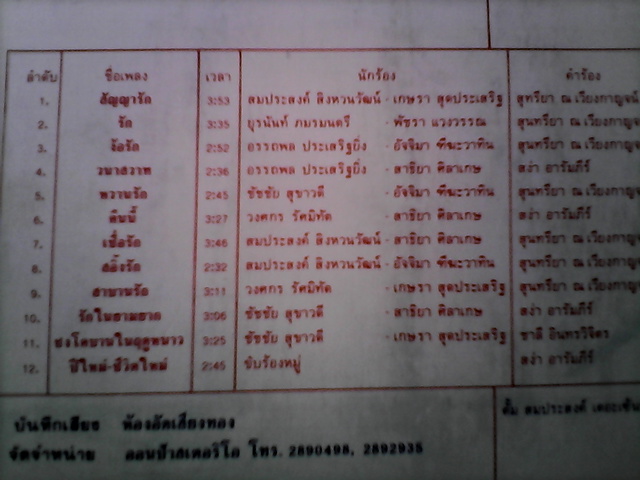 ลำดับ ชื่อเพลง เวลา นักร้อง คำร้อง
1. สัญญารัก 3:53 สมประสงค์ สิงหวนวัฒน์ - เกษรา สุดประเสริฐ สุนทรียา ณ เวียงกาญจน์
2. รัก 3:35 ยุรนันท์ ภมรมนตรี - พัชรา แวงวรรณ สุนทรียา ณ เวียงกาญ
3. ง้อรัก 2:52 อรรถพล ประเสริฐยิ่ง - อัจจิมา ฑีฆะวาทิน สุนทรียา ณ เวียงกาญ
4. วนาสวาท 2:36 อรรถพล ประเสริฐยิ่ง - สาธิยา ศิลาเกษ สง่า อารัมภีร์
5. หวานรัก 2:45 ชัชชัย สุขาวดี - อัจจิมา ฑีฆะวาทิน สุนทรียา ณ เวียงกาญ
6. คืนนี้ 3:27 วงศกร รัศมิทัต - สาธิยา ศิลาเกษ สง่า อารัมภีร์
7. เชื่อรัก 3:46 สมประสงค์ สิงหวนวัฒน์ - สาธิยา ศิลาเกษ สุนทรียา ณ เวียงกาญ
8. 2:32 สมประสงค์ สิงหวนวัฒน์ - อัจจิมา ฑีฆะวาทิน สุนทรียา ณ เวียงกาญ
9. สาบานรัก 3:11 วงศกร รัศมิทัต - เกษรา สุดประเสริฐ สุนทรียา ณ เวียงกาญ
10. รักในยามยาก 3:06 ชัชชัย สุขาวดี - สาธิยา ศิลาเกษ สง่า อารัมภีร์
11. ชงโคบานในฤดูหนาว 3:25 ชัชชัย สุขาวดี - เกษรา สุดประเสริฐ ชาลี อินทรวิจิตร
12. ปีใหม่-ชีวิตใหม่ 2:45 ขับร้องหมู่ สง่า อารัมภีร์
บันทึกเสียง ห้องอัดเสียงทอง
จัดจำหน่าย ออนป้าสเตอริโอ โทร. 2890498, 2892935
สมประสงค์